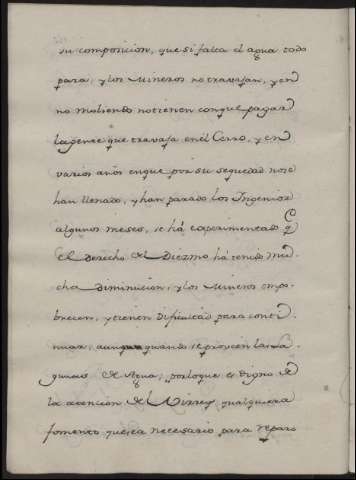 su composicion, que si falta el agua todo
para, y los Mineros no travajan, y en
no moliendo no tienen conque pagar
la gente que travaja en el Cerro, y en
varios años enque por su sequedad nose
han llenado, y han parado los Ingenios
algunos meses, se há experimentado q
el derecho de Diezmo há tenido mu-
cha diminucion, y los Mineros empo-
brecen, y tienen dificultad para conti-
nuar, aunque quando se proveen las La-
gunas de Agua; por lo que es digno de
la atencion del Virrey qualquiera
fomento que sea necesario para reparo